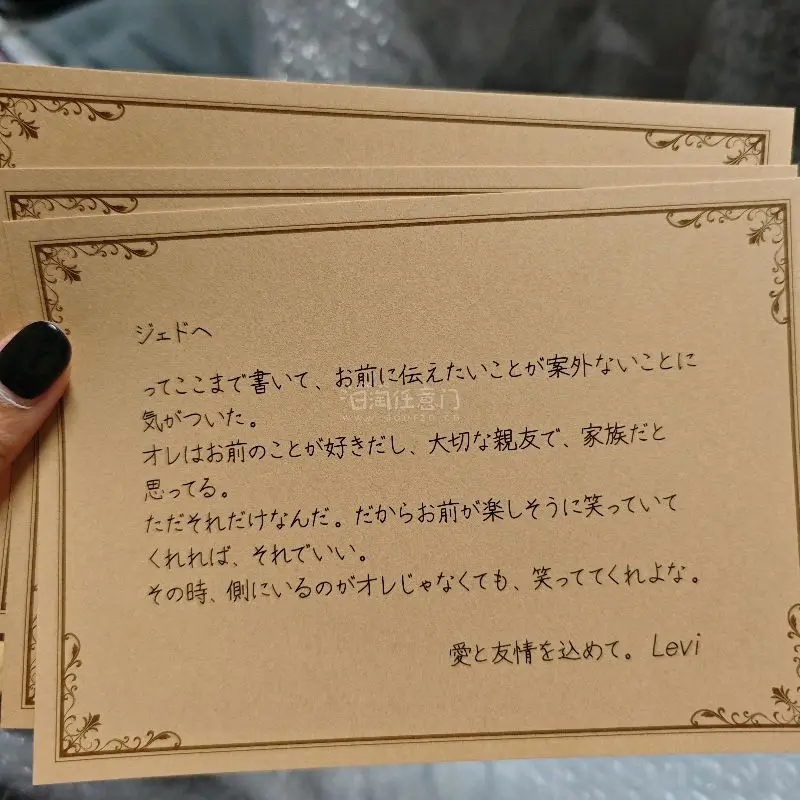 ジェドへ
ってここまで書いて、お前に伝えたいことが案外ないことに
気がついた。
オレはお前のことが好きだし、大切な親友で、家族だと
思ってる。
ただそれだけなんだ。だからお前が楽しそうに笑っていて
くれれば、それでいい。
その時、側にいるのがオレじゃなくても、笑っててくれよな。
愛と友情を込めて。Levi